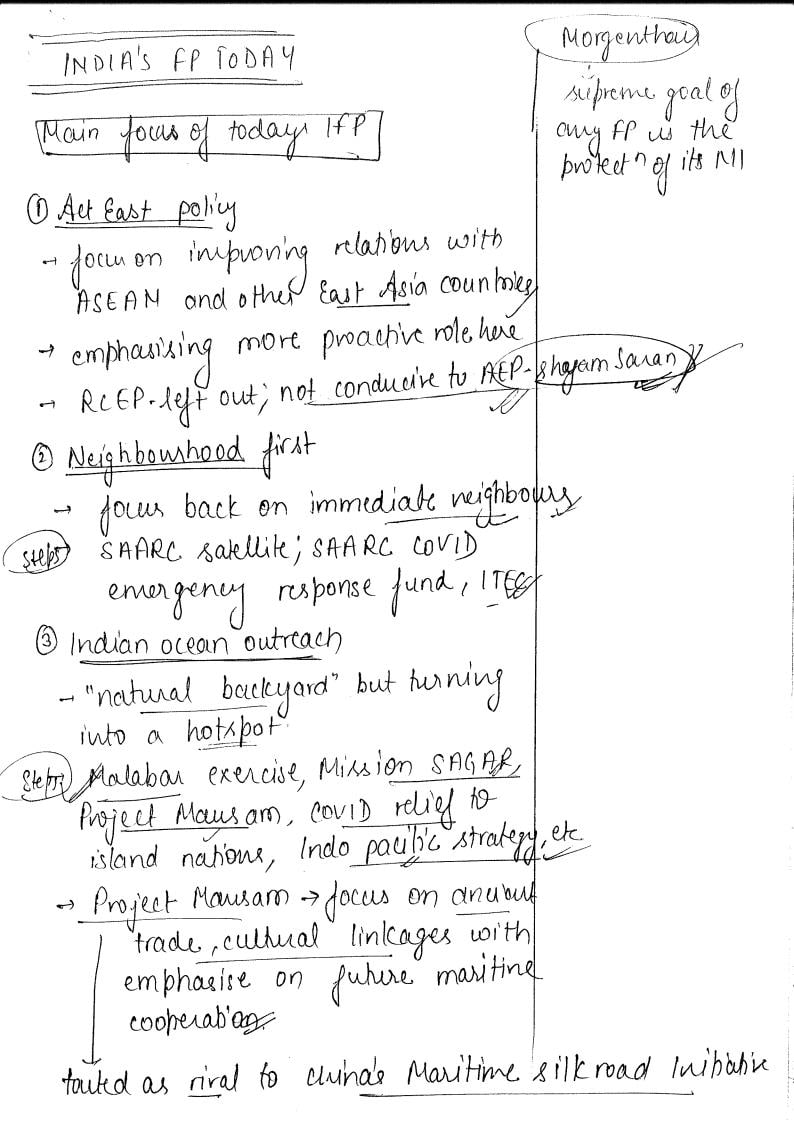 INDIA'S FP TODAY
Main focus of todays IFP
① Act East policy
→ focus on improving relations with
ASEAN and other East Asia countries
→ emphasising more proactive role here
→ RCEP-left out; not conducive to AEP-Shyam Saran
② Neighbourhood first
→ focus back on immediate neighbours
Steps SAARC satellite; SAARC COVID
emergency response fund, ITEC
③ Indian ocean outreach
→ "natural backyard" but turning
into a hotspot.
Steps Malabar exercise, Mission SAGAR,
Project Mausam, COVID relief to
island nations, Indo pacific strategy, etc
→ Project Mausam → focus on ancient
trade, cultural linkages with
emphasise on future maritine
cooperation
touted as rival to China's Maritime silk road Initiative
Morgenthau
supreme goal of
any FP is the
protectⁿ of its NI